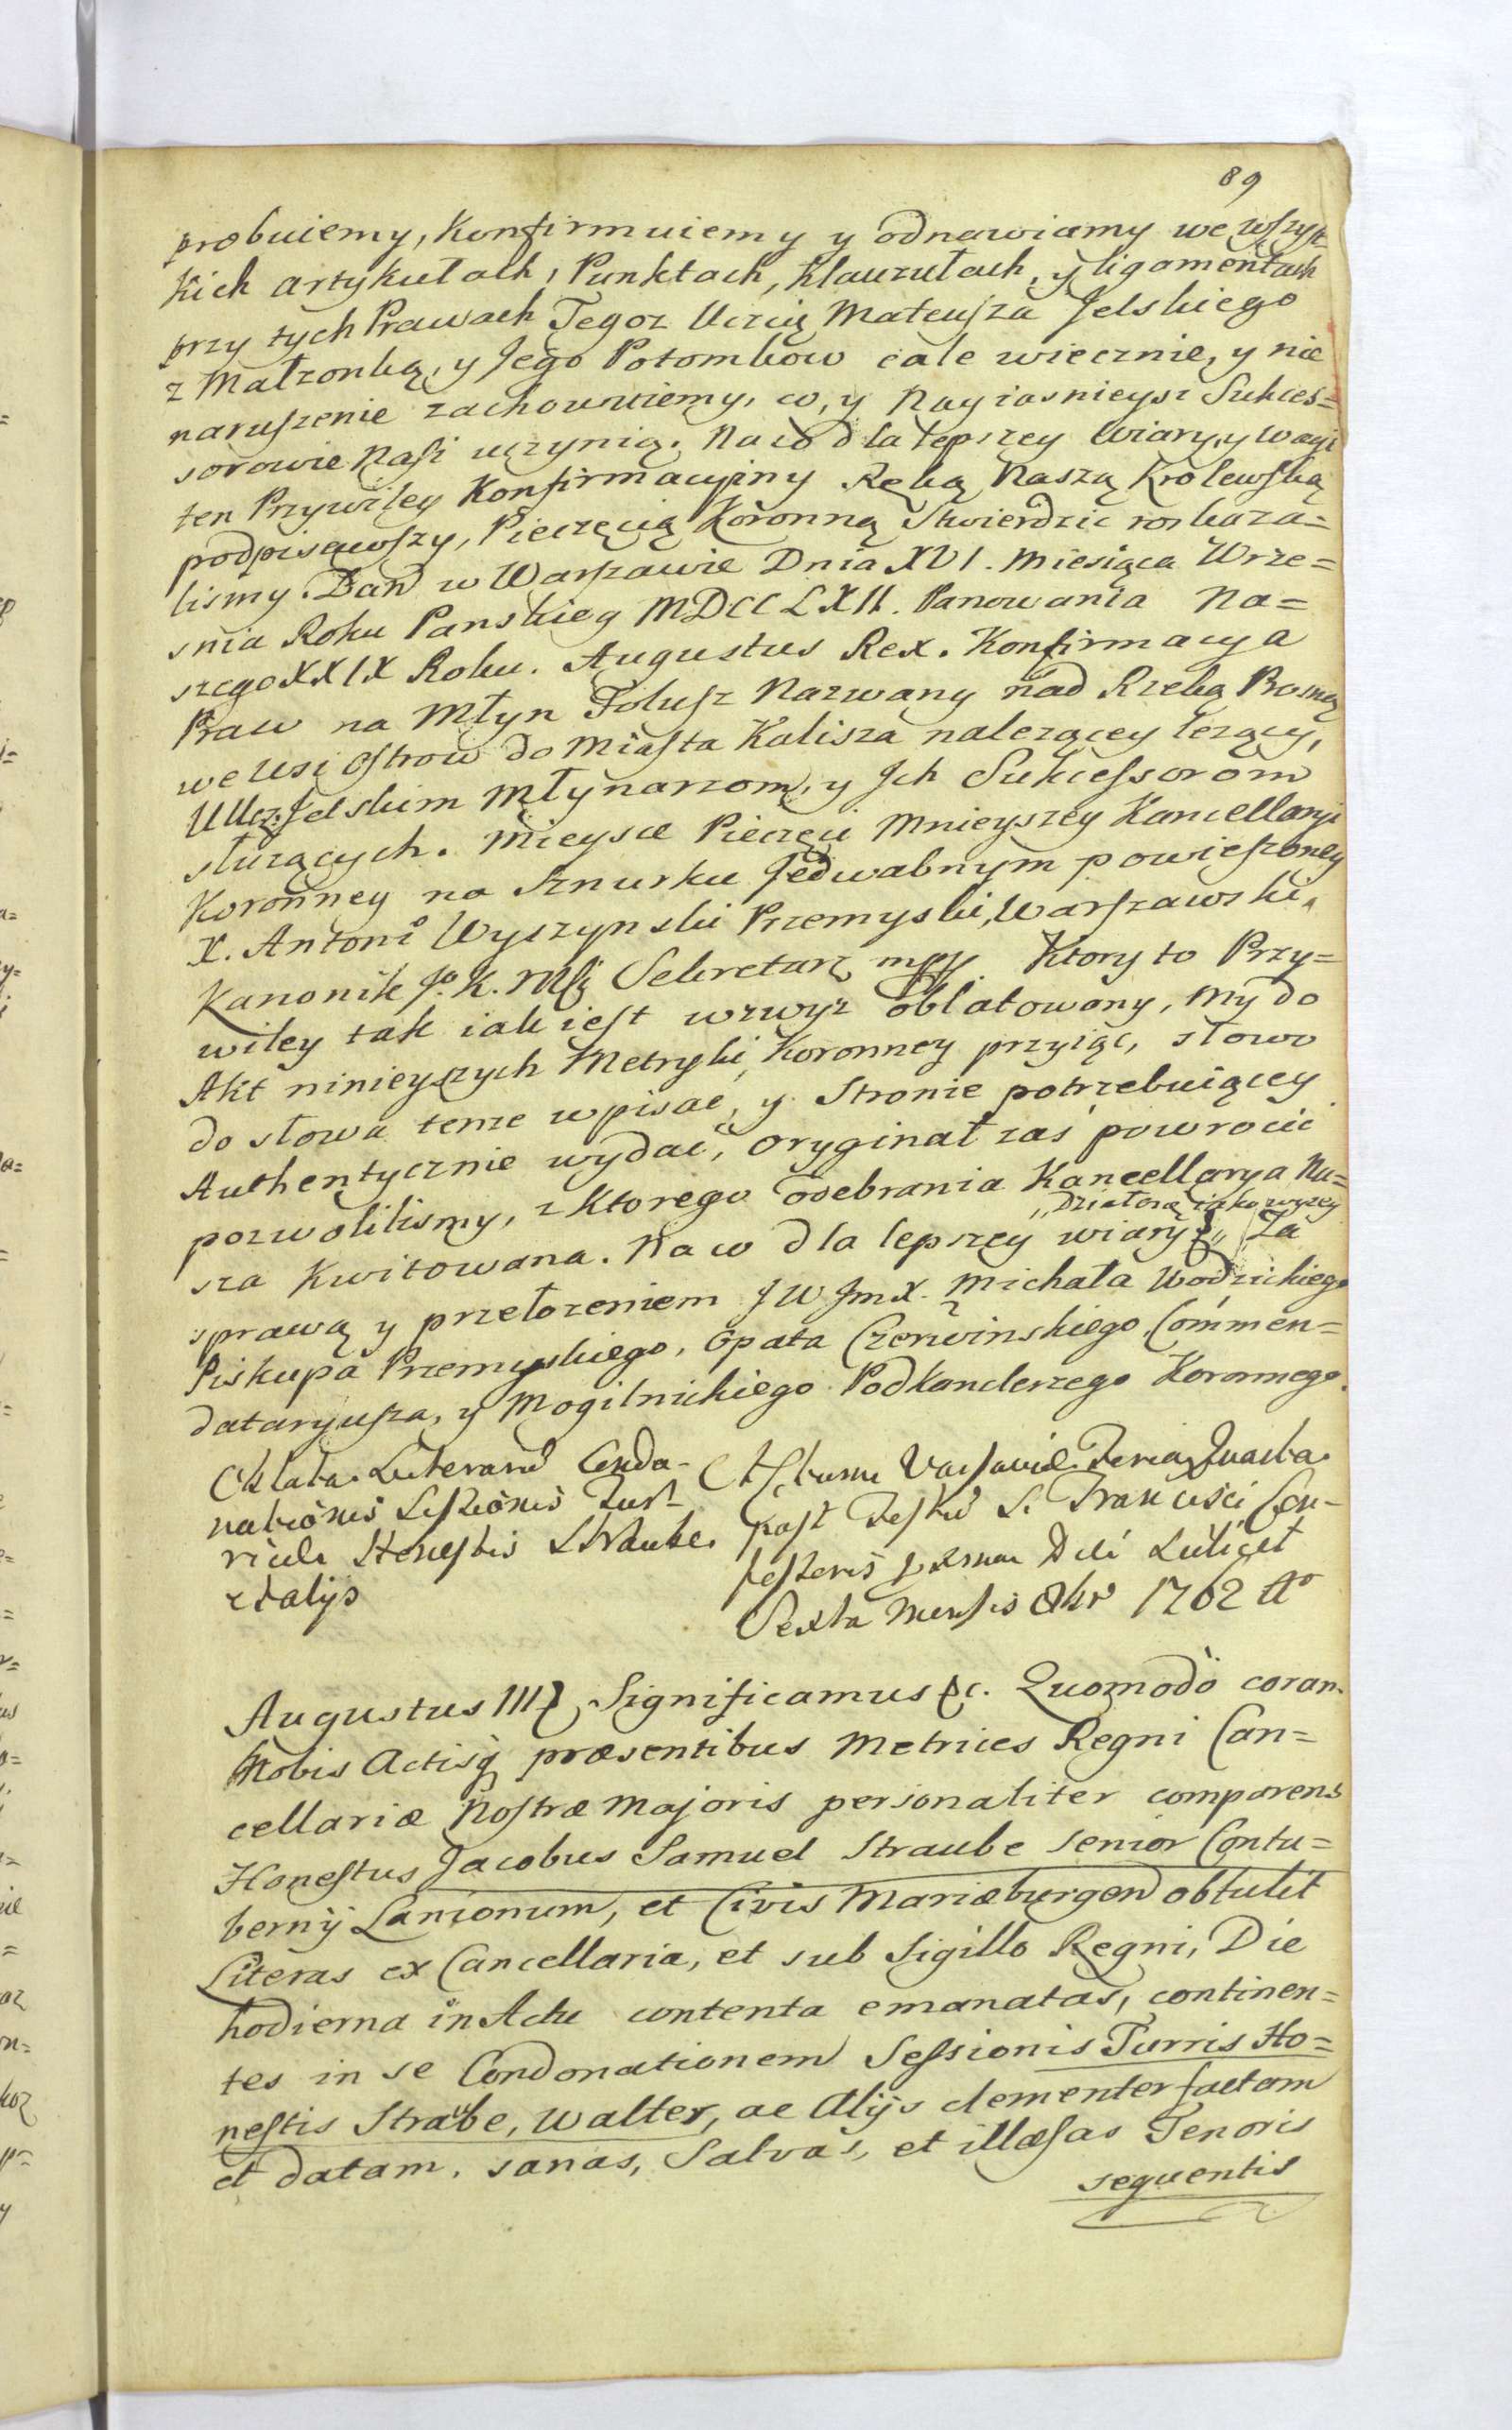 89
probuiemy, Konfirmuiemy y odnawiamy we wszyst-
kich artykułach, Punktach, Klauzułach, y ligamentach
przy tych Prawach Tegoz Uczcią Mateusza Jelskiego
z Małzonką, y Jego Potomkow cale wiecznie, y nie
naruszenie zachowuiemy, co, y Nayiasnieysi Sukces=
sorowie Nasi uczynią. Na co dla lepszey Wiary, y Wagi
ten Przywiley Konfirmacyiny Ręką Naszą Krolewską
podpisawszy, Pieczęcią Koronną Stwierdzic roskaza=
lismy. Dan w Warszawie Dnia XVI. Miesiąca Wrze=
snia Roku Panskieg MDCCLXII. Panowania Na=
szego XXIX Roku. Augustus Rex. Konfirmacya
Praw na Młyn Folusz Nazwany nad Rzeką Prosną
we Wsi Ostrow do Miasta Kalisza nalezącey lezący,
UUcz: Jelskim Młynarzom, y Jch Sukcessorom
słuzących. Mieysce Pieczęci Mnieyszey Kancellaryi
Koronney na Sznurku Jedwabnym powieszoney
X. Antoni Wyszynski Przemyski, Warszawski,
Kanonik Jo. K. Msci Sekretarz mpp. Ktory to Przy=
wiley tak iak iest wzwyz oblatowany, My do
Akt ninieyszych Metryki Koronney przyiąc, słowo
do słowa temze wpisac, y Stronie potrzebuiącey
Authentycznie wydac, Oryginał zaś powrocic
pozwolilismy, z Ktorego odebrania Kancellarya Na=
sza Kwitowana. Na co dla lepszey wiary &, „Działo się iako wyzey" Za
sprawą y przełozeniem JW JmX. Michała Wodzickiego
Biskupa Przemyskiego, Opata Czerwinskiego, Commen=
dataryusza, y Mogilnickiego Podkanclerzego Koronnego.
Oblata Literarū Condo-
nationis Sessionis Turr-
ricula Honestis Straube
et alijs
Actum Varsaviæ Feria Quarta
post Festū S. Francisci Con-
fessoris proxima Die scilicet
Sexta Mensis 8bris 1762 Ao
Augustus III, Significamus &c. Quomodò coram
Nobis Actisq̃ præsentibus Metrices Regni Can=
cellariæ Nostræ Majoris personaliter comparens
Honestus Jacobus Samuel Straube Senior Contu=
bernij Lanionum, et Civis Mariæburgen obtulit
Literas ex Cancellaria, et sub Sigillo Regni, Die
hodierna in Actu contenta emanatas, continen=
tes in se Condonationem Sessionis Turris Ho=
nestis Straube, Walter, ac Alijs clementer factam
et datam. sanas, Salvas, et illæsas Tenoris
sequentis